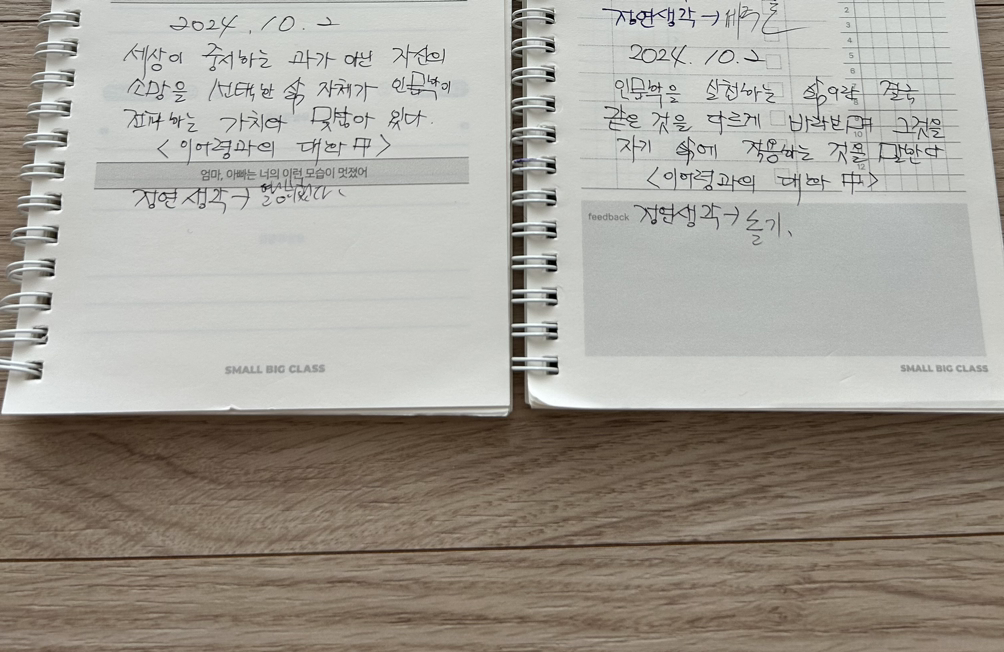 2024. 10. 2
세상이 중시하는 과가 아닌 자신의
소망을 선택한 삶 자체가 인문학이
전파하는 가치와 맞닿아 있다.
<이어령과의 대화 中>
엄마, 아빠는 너의 이런 모습이 멋졌어
정연생각→ 열심히했다.
SMALL BIG CLASS
정연생각→
2
3
4
5
6
2024. 10. 2
인문학을 실천하는 삶이란 결국
같은 것을 다르게 바라보며 그것을
10
자기 삶에 적용하는 것을 말한다
12
<이어령과의 대화 中>
feedback
정연생각→ 슬기.
SMALL BIG CLASS